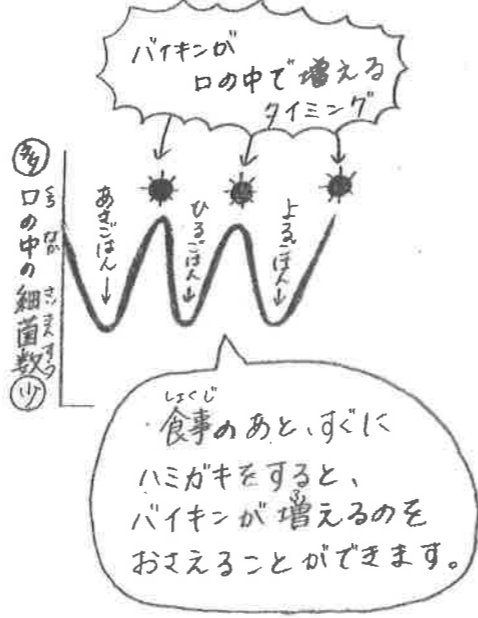 バイキンが
口の中で増える
タイミング
多
口の中の細菌数
くち なか さいきんすう
少
あさごはん
ひるごはん
よるごはん
しょくじ
食事のあと、すぐに
ハミガキをすると、
ふ
バイキンが増えるのを
おさえることができます。